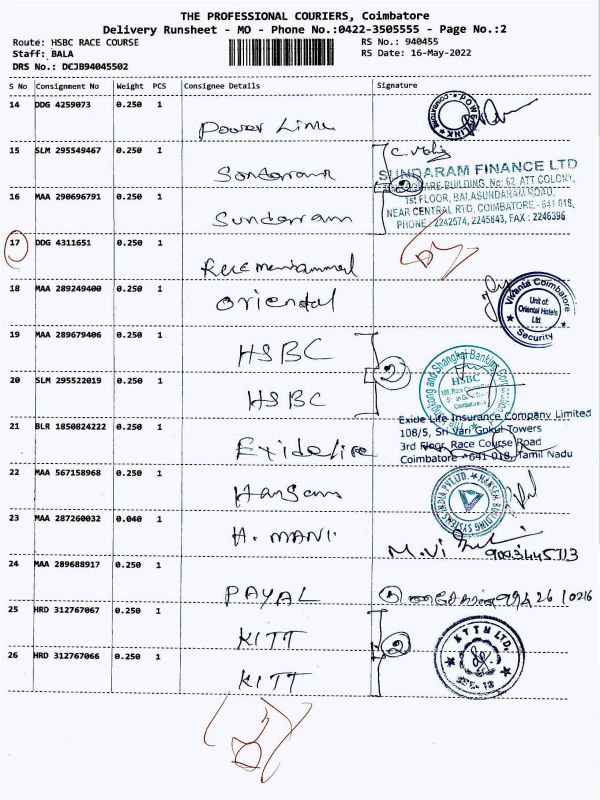 THE PROFESSIONAL COURIERS, Coimbatore
Delivery Runsheet - MO - Phone No.:0422-3505555 - Page No.:2
Route: HSBC RACE COURSE RS No.: 940455
Staff: BALA RS Date: 16-May-2022
DRS No.: DEJB94045502
S No Consignment No Weight PCS Consignee Details Signature
14 DDG 4259073 0.250 1
Power Line
15 SLM 295549467 0.250 1
Sundaram
SUNDARAM FINANCE LTD
BUILDING, No: 62, ATT COLONY,
16 MAA 290696791 0.250 1 2
1st FLOOR, BALASUNDARAM ROAD,
NEAR CENTRAL RTO, COIMBATORE - 641 018,
Sundaram
PHONE : 2242574, 2245843, FAX : 2246396
17 DDG 4311651 0.250 1
18 MAA 289249400 0.250 1
Oriental
Vivanta Coimbatore
Unit of:
Oriental Hotels
Ltd.
Security
19 MAA 289679406 0.250 1
HSBC
2
HSBC
20 SLM 295522019 0.250 1
HSBC
21 BLR 1850824222 0.250 1
Exide Life
Exide Life Insurance Company Limited
108/5, Sri Vari Gokul Towers
3rd Floor, Race Course Road
Coimbatore - 641 018, Tamil Nadu
22 MAA 567158968 0.250 1
Hansen
23 MAA 287260032 0.040 1
H. MANI
24 MAA 289688917 0.250 1
PAYAL
25 HRD 312767067 0.250 1
KITT
2
26 HRD 312767066 0.250 1
KITT